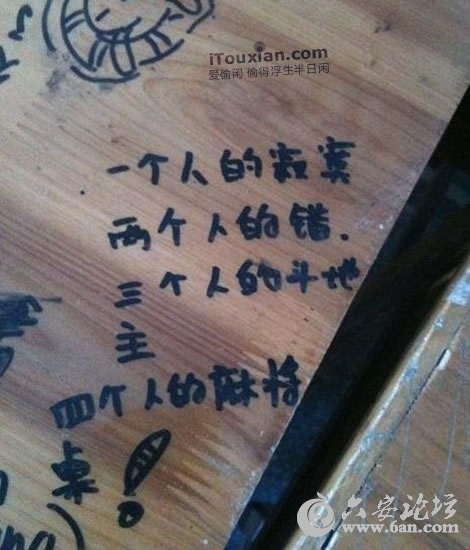 iTouxian.com
爱偷闲 偷得浮生半日闲
一个人的寂寞
两个人的错.
三个人的斗地
主
四个人的麻将
桌!
六安论坛
www.6an.com